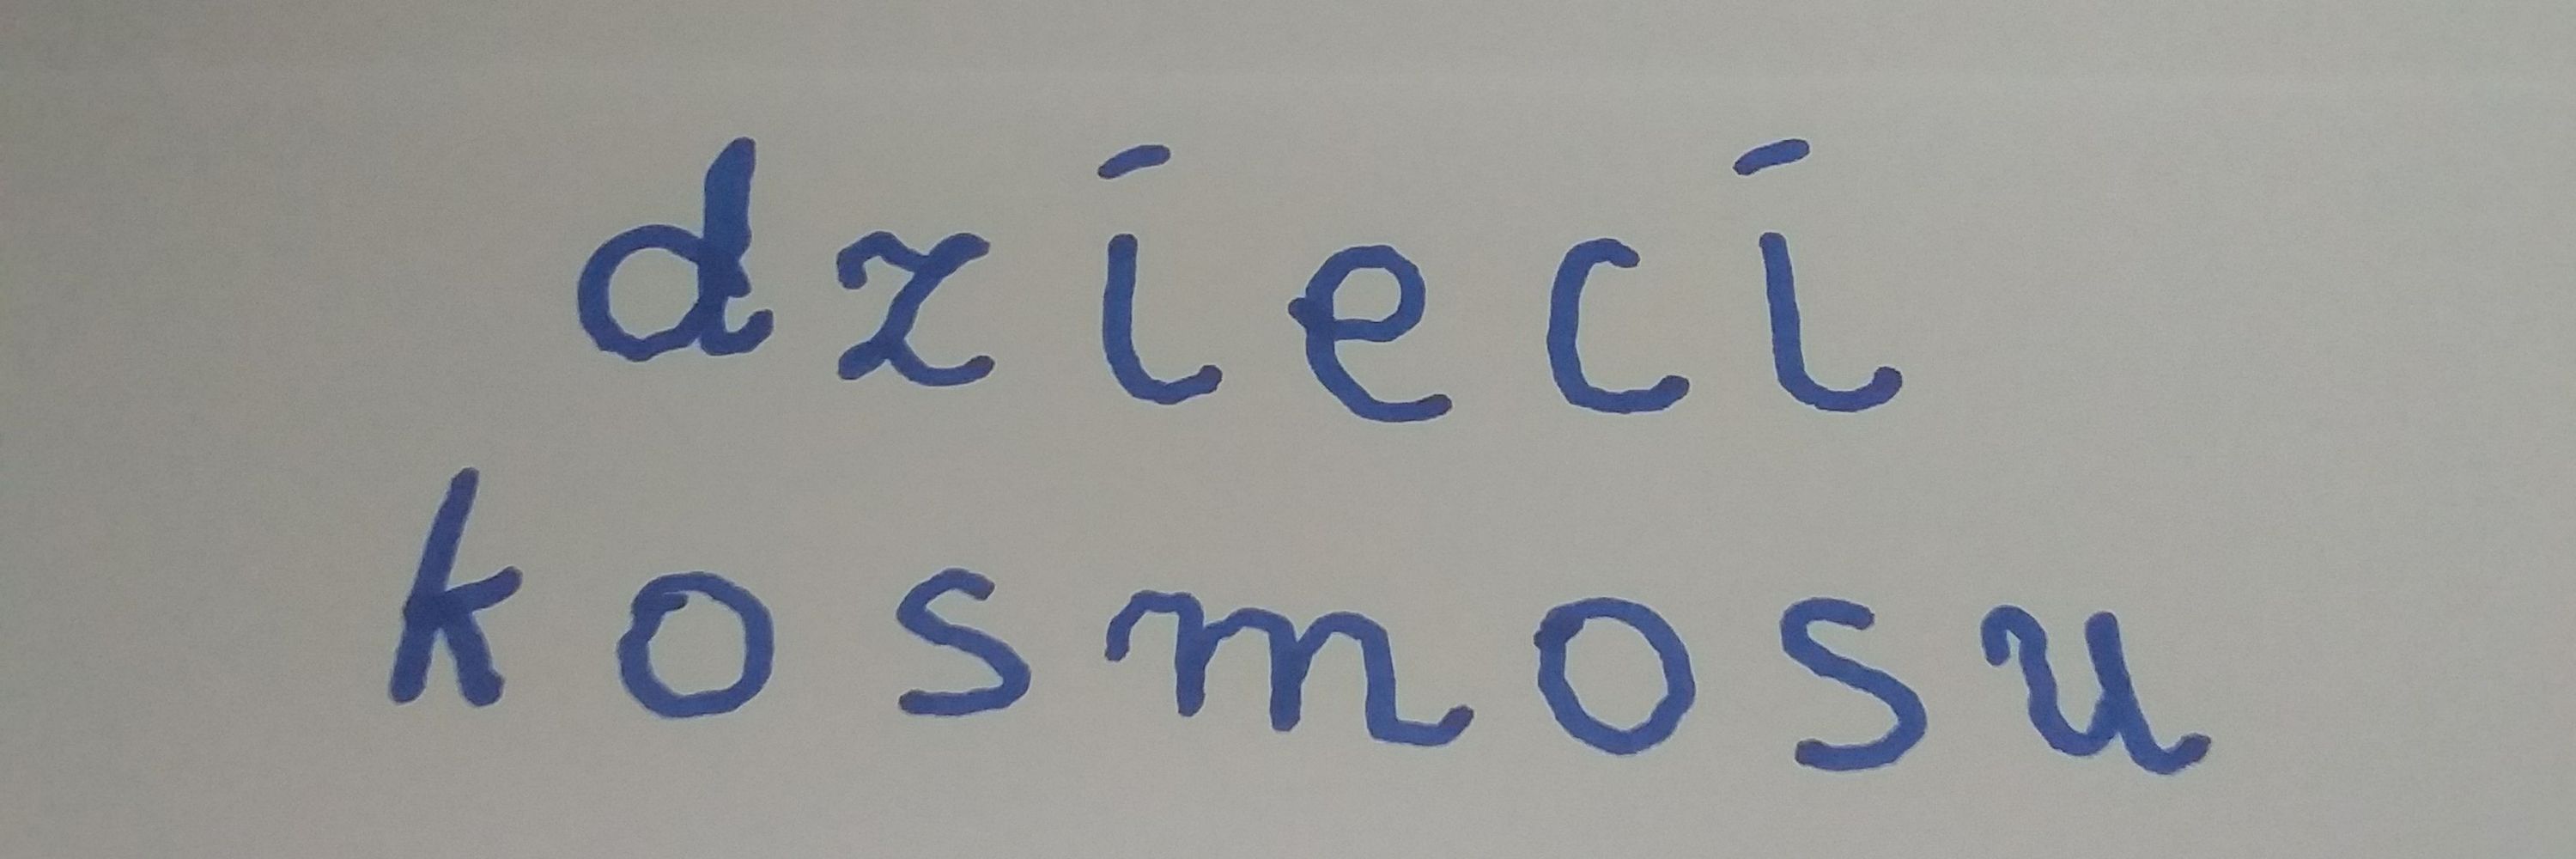 dzieci
kosmosu